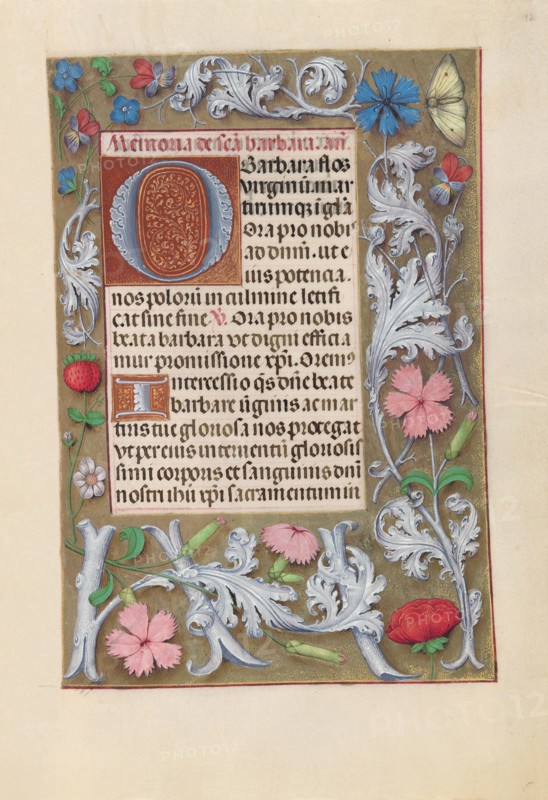 Memoria de sca barbara. an̄.
O Barbara flos
virginū mar
tirumqʒ īgl'a
Ora pro nobis
ad dnm̄. ut e
ius potencia.
nos polorū in culmine letifi
cat sine fine. V̄. Ora pro nobis
beata barbara vt digni efficia
mur promissione xp̄i. Oremus
Intercessio q̄s dn̄e beate
barbare v̄ginis ac mar
tiris tue gloriosa nos protegat
vt per eius interuentū gloriosis
simi corporis et sanguinis dn̄i
nostri ih̄u xp̄i sacramentum in
PHOTO12